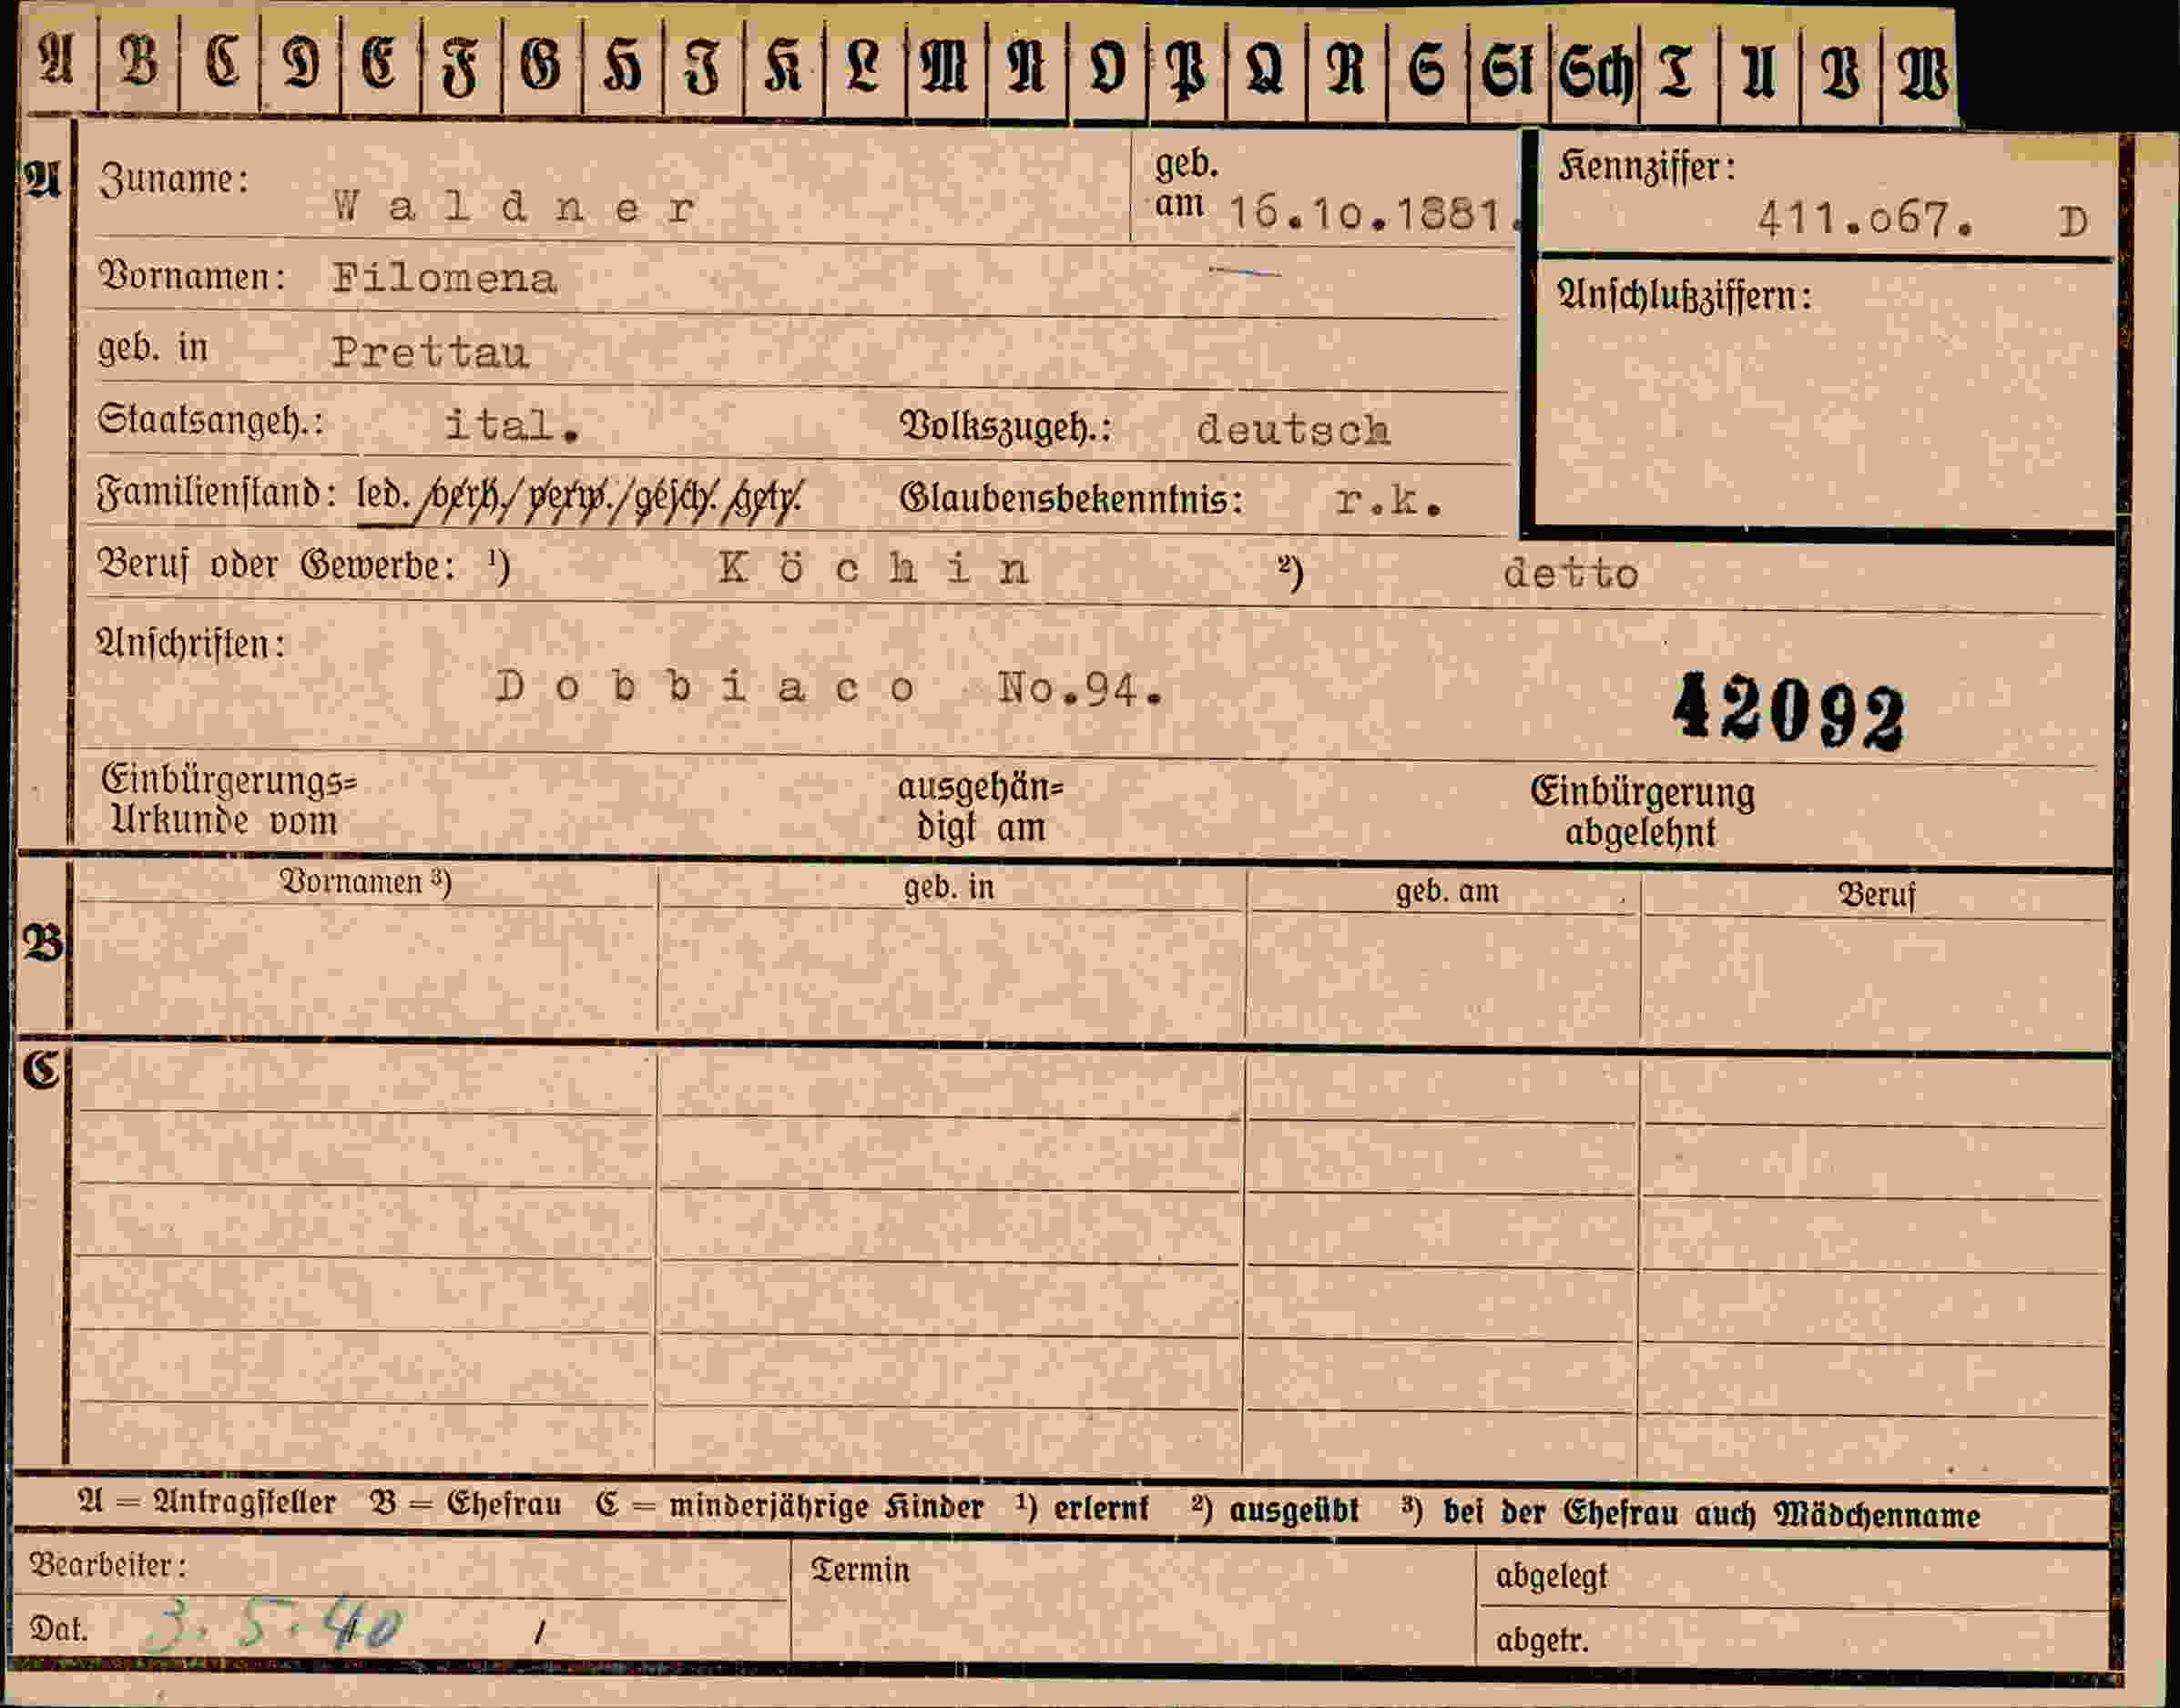 A B C D E F G H I K L M N O P Q R S St Sch T U V W
A Zuname: Waldner geb. am 16.10.1881. Kennziffer: 411.o67. D
Vornamen: Filomena
Anschlußziffern:
geb. in Prettau
Staatsangeh.: ital. Volkszugeh.: deutsch
Familienstand: led./verh./verw./gesch./getr. Glaubensbekenntnis: r.k.
Beruf oder Gewerbe: ¹) Köchin ²) detto
Anschriften:
Dobbiaco No.94.
42092
Einbürgerungs= ausgehän= Einbürgerung
Urkunde vom digt am abgelehnt
Vornamen ³) geb. in geb. am Beruf
B
C
A = Antragsteller B = Ehefrau C = minderjährige Kinder ¹) erlernt ²) ausgeübt ³) bei der Ehefrau auch Mädchenname
Bearbeiter: Termin abgelegt
Dat. 3.5.40 / abgetr.